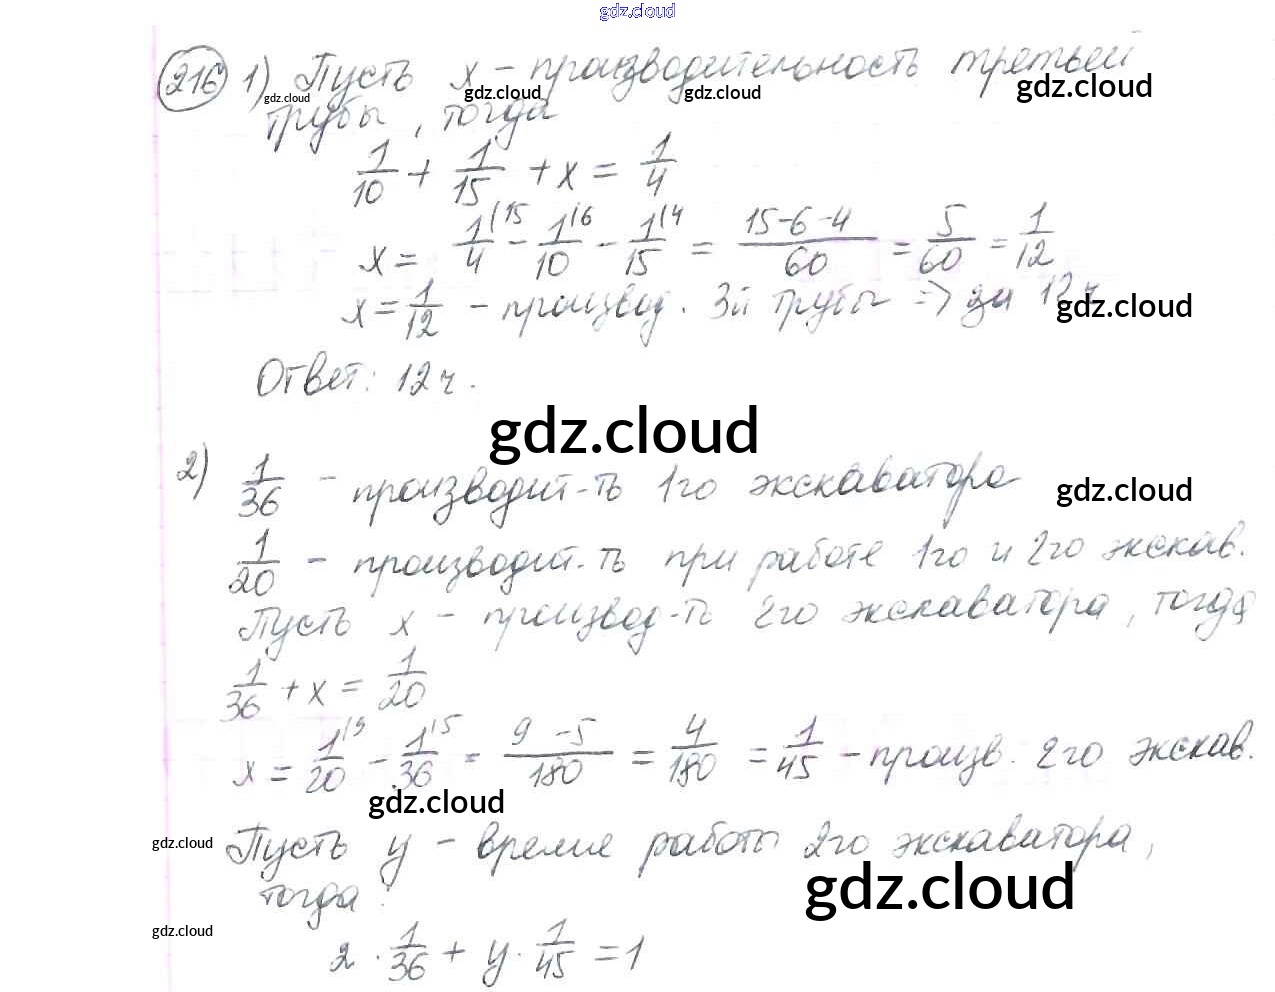 gdz.cloud
216 1) Пусть x – производительность третьей
gdz.cloud gdz.cloud gdz.cloud gdz.cloud
трубы, тогда
1/10 + 1/15 + x = 1/4
x = 1/4(15 - 1/10(6 - 1/15(4 = 15-6-4/60 = 5/60 = 1/12
x = 1/12 – производ. 3й трубы => за 12ч
gdz.cloud
Ответ: 12 ч.
gdz.cloud
2) 1/36 – производит-ть 1го экскаватора
gdz.cloud
1/20 – производит-ть при работе 1го и 2го экскав.
Пусть x – производ-ть 2го экскаватора, тогда
1/36 + x = 1/20
x = 1/20(9 - 1/36(5 = 9-5/180 = 4/180 = 1/45 – произв. 2го экскав.
gdz.cloud
gdz.cloud
Пусть y – время работы 2го экскаватора,
gdz.cloud
тогда:
gdz.cloud
2 · 1/36 + y · 1/45 = 1